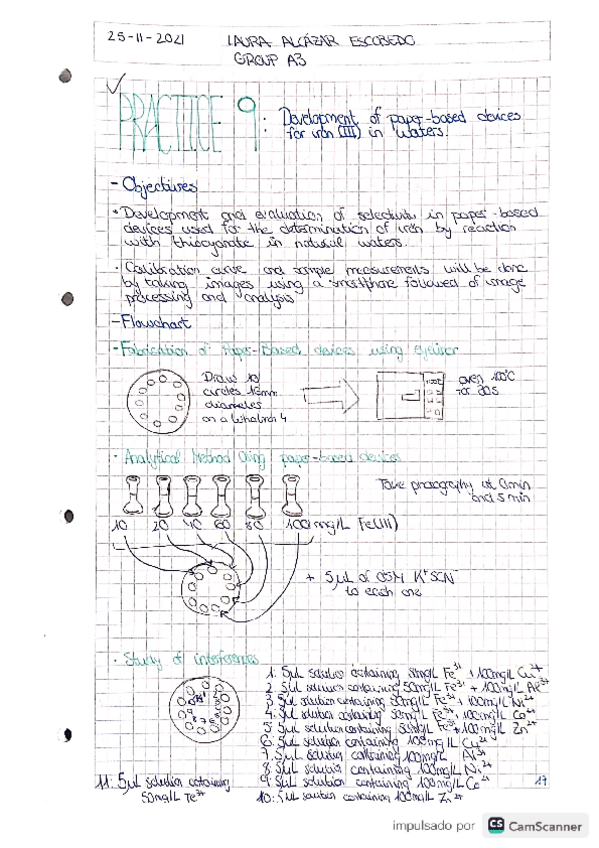 25-11-2021 LAURA ALCÁZAR ESCOBEDO
GROUP A3
PRACTICE 9: Development of paper-based devices
for iron (III) in waters.
- Objectives
• Development and evaluation of selectivity in paper-based
devices used for the determination of iron by reaction
with thiocyanate in natural waters.
• Calibration curve and sample measurements will be done
by taking images using a smartphone followed of image
processing and analysis
- Flowchart
- Fabrication of Paper-Based devices using eyeliner
Draw 10
circles 16mm
diameters
on a Whatman 4
oven 100°C
for 30s
• Analytical Method Using paper-based devices
Take photography at 0 min
and 5 min
10 20 40 60 80 100 mg/L Fe(III)
+ 5µL of 0.5M K⁺SCN⁻
to each one
• Study of interferences
1. 5µL solution containing 50mg/L Fe³⁺ + 100mg/L Cu²⁺
2. 5µL solution containing 50mg/L Fe³⁺ + 100mg/L Al³⁺
3. 5µL solution containing 50mg/L Fe³⁺ + 100mg/L Ni²⁺
4. 5µL solution containing 50mg/L Fe³⁺ + 100mg/L Co²⁺
5. 5µL solution containing 50mg/L Fe³⁺ + 100mg/L Zn²⁺
6. 5µL solution containing 100mg/L Cu²⁺
7. 5µL solution containing 100mg/L Al³⁺
8. 5µL solution containing 100mg/L Ni²⁺
9. 5µL solution containing 100mg/L Co²⁺
10. 5µL solution containing 100mg/L Zn²⁺
11. 5µL solution containing
50mg/L Fe³⁺
17
impulsado por CS CamScanner